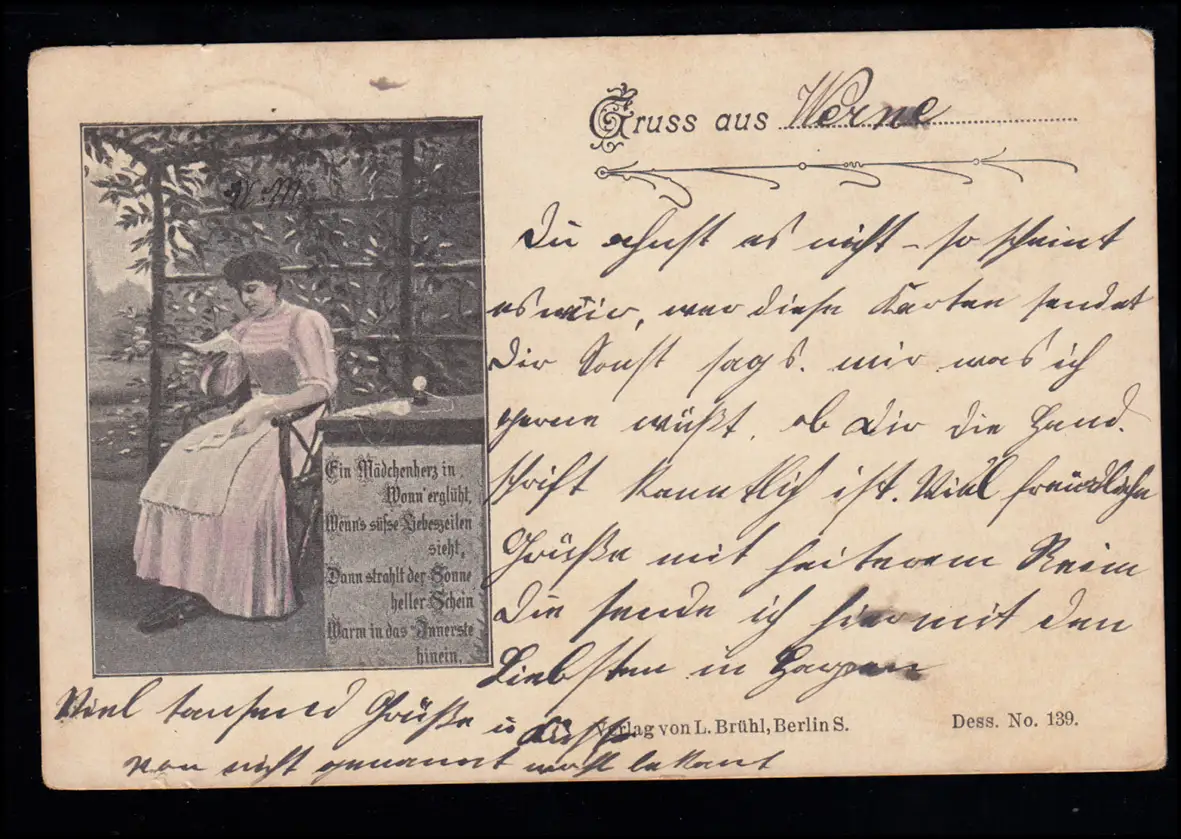 Gruss aus Werne
W. M.
Du ahnst es nicht - so scheint
es mir, wer diese Karten sendet
Dir Sonst sags. mir was ich
gerne wüßt, ob Dir die Hand.
schrift kanntlich ist. Viel freundliche
Grüße mit heiterem Reim
Die sende ich hiermit den
Liebsten in Hagen
Ein Mädchenherz in
Wonn' erglüht,
Wenn's süsse Liebeszeilen
sieht,
Dann strahlt der Sonne
heller Schein
Warm in das Innerste
hinein.
Viel tausend Grüße u Küsse
von nicht genannt wohl bekant
Verlag von L. Brühl, Berlin S.
Dess. No. 139.